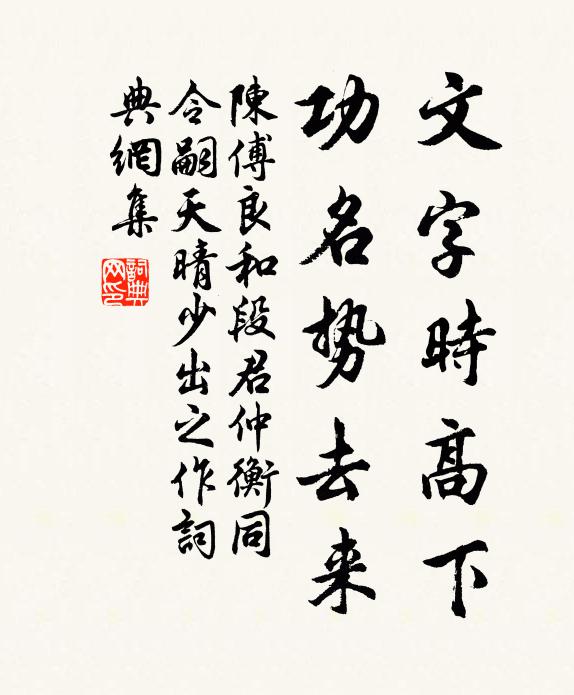 文字時高下
功名勢去来
陳傅良和段君仲衡同
令嗣天晴少出之作詞
典網集
詞典網印